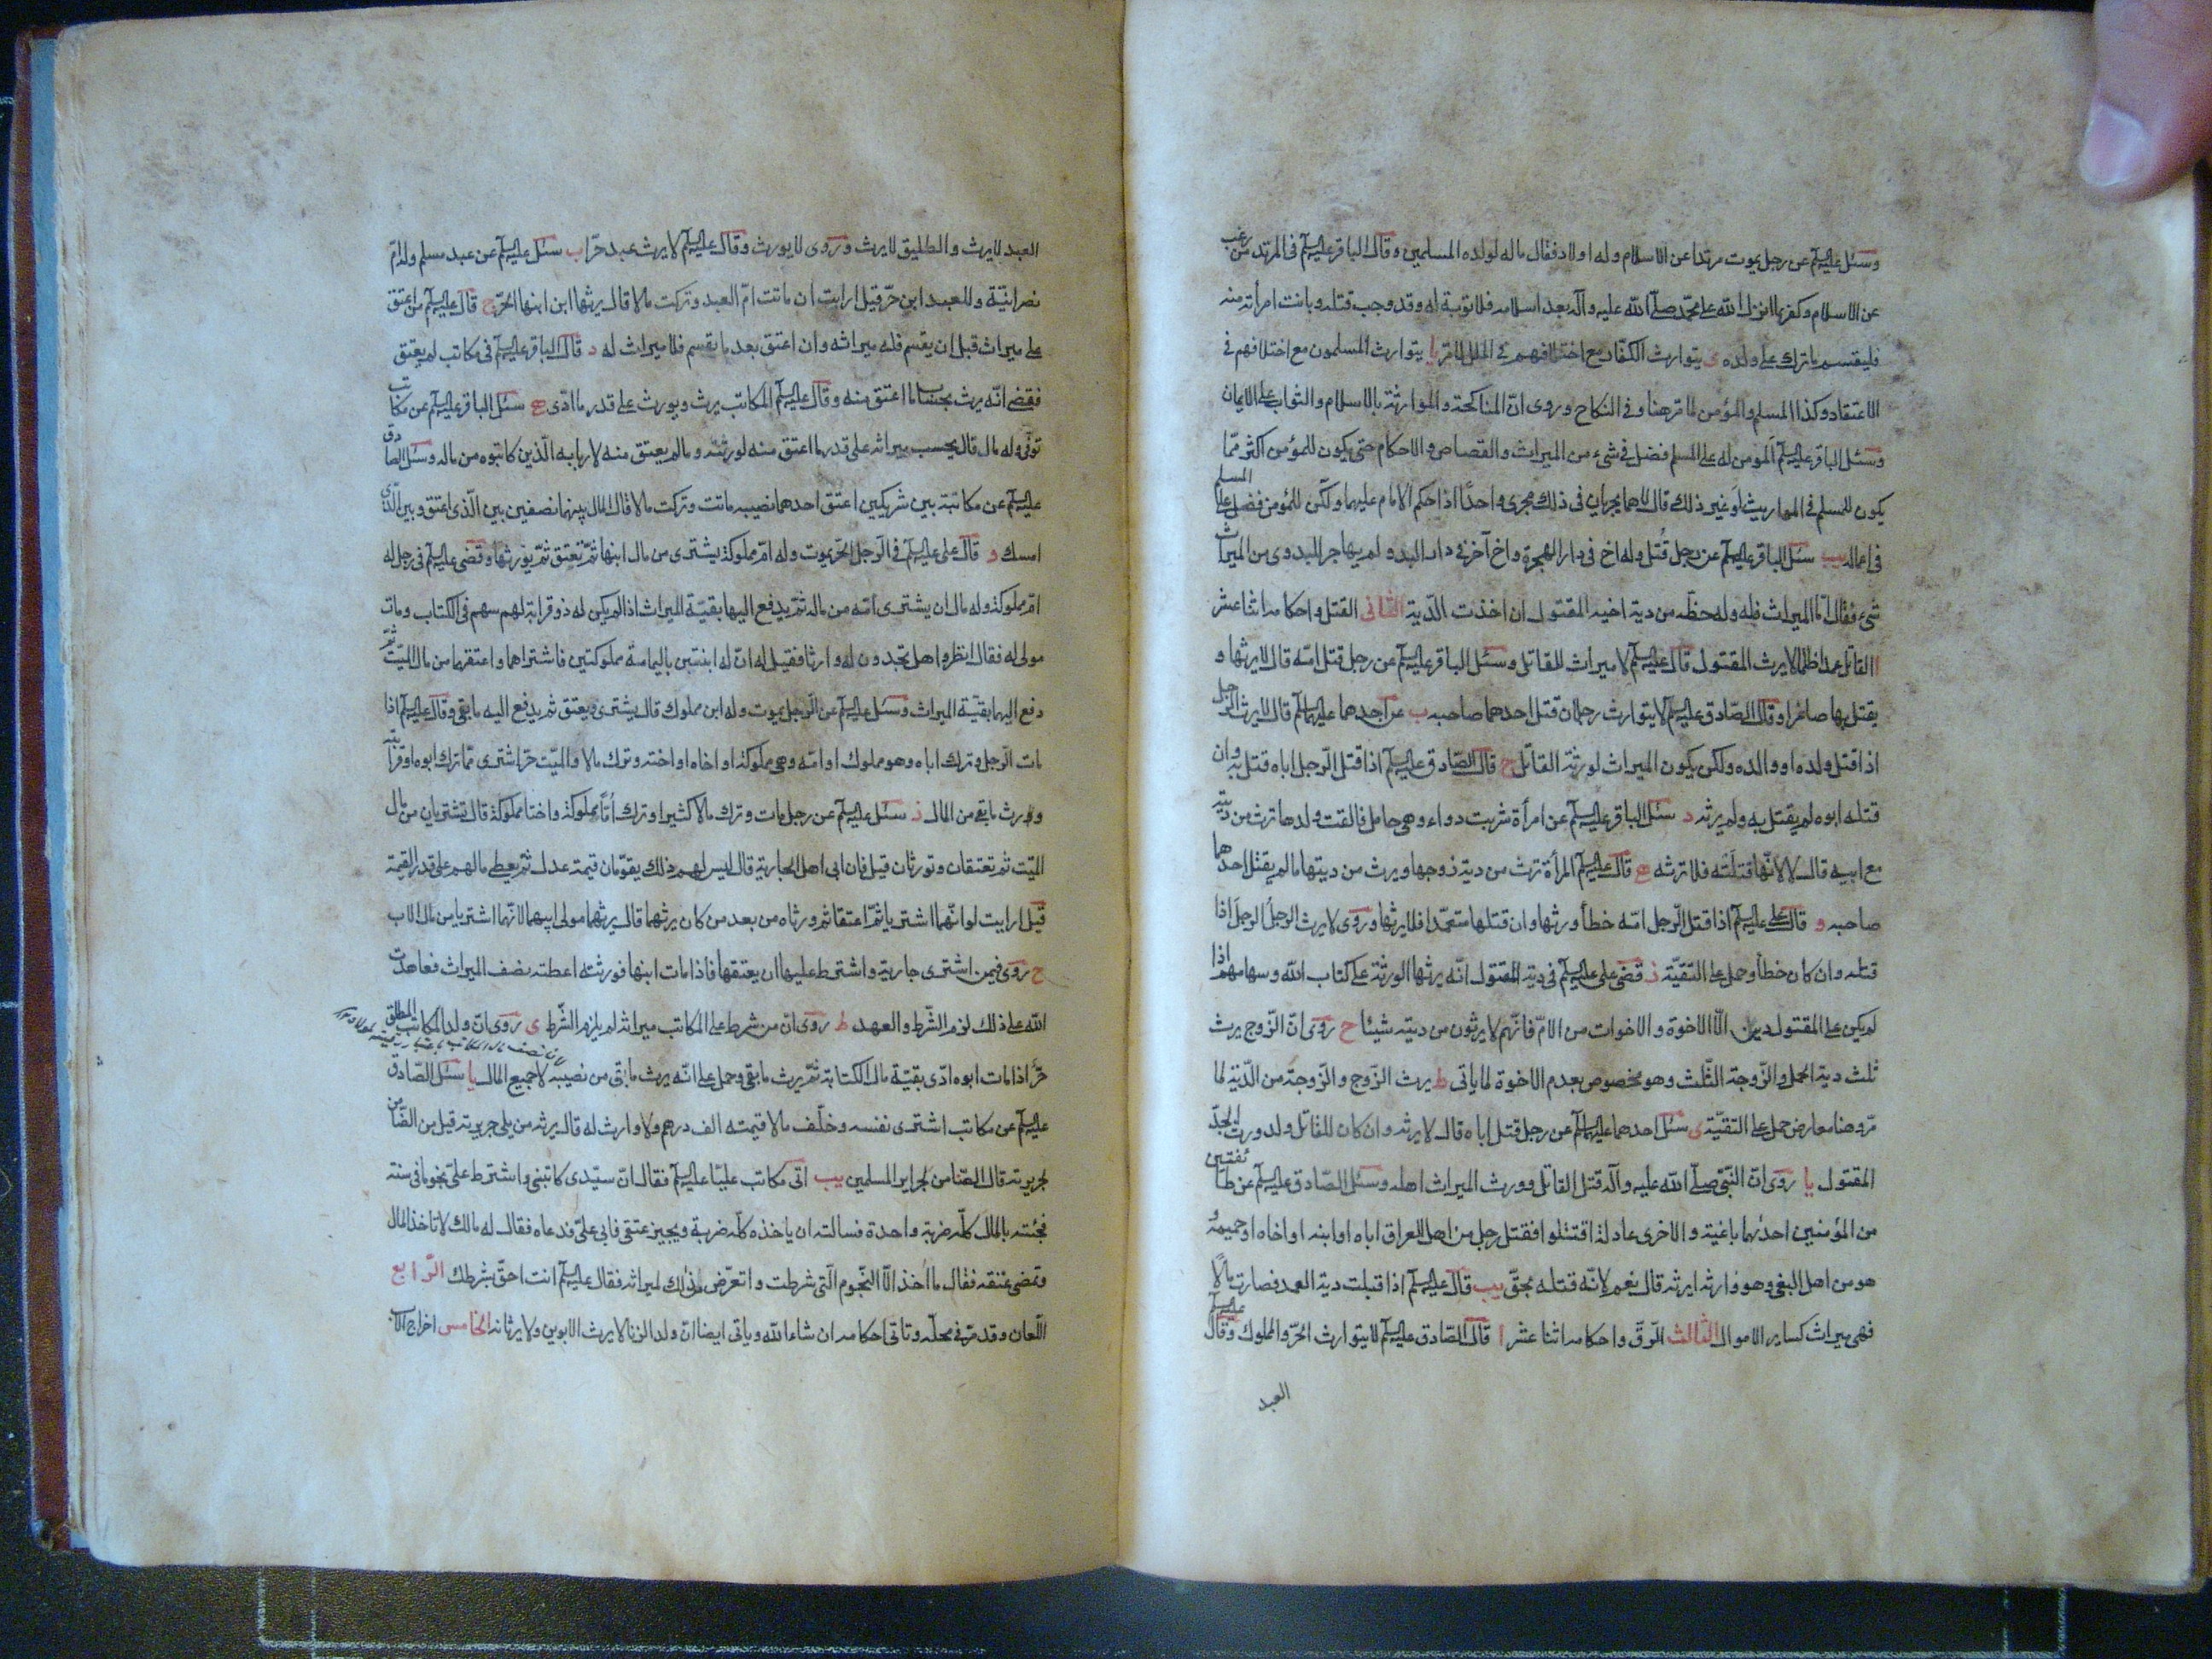 وسئل عليه السلم عن رجل يموت مرتدا عن الاسلام وله اولاد فقال ماله لولده المسلمين وقال الباقر عليه السلم فى المرتد من رغب
عن الاسلام وكفر بما انزل الله على محمّد صلّى الله عليه وآله بعد اسلامه فلا توبة له وقد وجب قتله وبانت امرأته منه
فليقسم ما ترك على ولده ى يتوارث الكفّار مع اختلافهم فى الملل لما مرّ يا يتوارث المسلمون مع اختلافهم فى
الاعتقاد وكذا المسلم والمؤمن لما مرّ هنا وفى النكاح وروى انّ المناكحة والموارثة بالاسلام والثواب على الايمان
وسئل الباقر عليه السلم المؤمن له على المسلم فضل فى شىء من الميراث والقصاص والاحكام حتى يكون للمؤمن اكثر ممّا
يكون للمسلم فى المواريث او غير ذلك قال لا هما يجريان فى ذلك مجرى واحدًا اذا حكم الامام عليهما ولكن للمؤمن فضل على المسلم
فى اعماله يب سئل الباقر عليه السلم عن رجل قُتل وله اخ فى دار الهجرة واخ آخر فى دار البدو ولم يهاجر البدوى من الميراث
شىء فقال امّا الميراث فله وله حظّه من دية اخيه المقتول ان اخذت الدّية الثانى القتل واحكامه اثنا عشر
ا القاتل عمدا ظلما لا يرث المقتول قال عليه السلم لا ميراث للقاتل وسئل الباقر عليه السلم عن رجل قتل امّه قال لا يرثها و
يقتل بها صاغرا وقال الصّادق عليه السلم لا يتوارث رجلان قتل احدهما صاحبه ب عن احدهما عليهما السلم قال لا يرث الرجل
اذا قتل ولده او والده ولكن يكون الميراث لورثة القاتل ج قال الصّادق عليه السلم اذا قتل الرّجل اباه قتل به وان
قتله ابوه لم يقتل به ولم يرثه د سئل الباقر عليه السلم عن امرأة شربت دواء وهى حامل فالقت ولدها ترث من ديته
مع ابيه قال لا لانّها قتلَتْه فلا ترثه ه قال عليه السلم المرأة ترث من دية زوجها ويرث من ديتها ما لم يقتل احدهما
صاحبه و قال على عليه السلم اذا قتل الرّجل امّه خطأ ورثها وان قتلها متعمّدا فلا يرثها وروى لا يرث الرجلُ الرجلَ اذا
قتله وان كان خطأ وحمل على التقيّة ز قضى على عليه السلم فى دية المقتول انّه يرثها الورثة على كتاب الله وسهامهم اذا
لم يكن على المقتول دين الّا الاخوة والاخوات من الامّ فانّهم لا يرثون من ديته شيئا ح روى انّ الزّوج يرث
ثلث دية الحمل والزّوجة الثّلث وهو مخصوص بعدم الاخوة لما ياتى ط يرث الزّوج والزّوجة من الدّية لما
مرّ وهنا معارض حمل على التقيّة ى سئل احدهما عليهما السلم عن رجل قتل اباه قال لا يرثه وان كان للقاتل ولد ورث الجدّ
المقتول يا روى انّ النّبى صلّى الله عليه وآله قتل القاتل وورث الميراث اهله وسئل الصّادق عليه السلم عن طائفتين
من المؤمنين احدٰيهما باغية والاخرى عادلة اقتتلوا فقتل رجل من اهل العراق اباه او ابنه او اخاه او حميمه و
هو من اهل البغى وهو وارثه ايرثه قال نعم لانّه قتله بحقّ يب قال عليه السلم اذا قبلت دية العمد فصارت مالًا
فهى ميراث كساير الاموال الثالث الرّقّ واحكامه اثنا عشر ا قال الصّادق عليه السلم لا يتوارث الحرّ والمملوك وقال عليه السلم
العبد
العبد لا يرث والطليق لا يرث وروى لا يورث وقال عليه السلم لا يرث عبد حرّا ب سئل عليه السلم عن عبد مسلم وله امّ
نصرانيّة وللعبد ابن حرّ قيل ارايت ان ماتت امّ العبد وتركت مالا قال يرثها ابن ابنها الحرّ ج قال عليه السلم من اعتق
على ميراث قبل ان يقسم فله ميراثه وان اعتق بعد ما يقسم فلا ميراث له د قال الباقر عليه السلم فى مكاتب لم يعتق
فقضى انّه يرث بحساب ما اعتق منه وقال عليه السلم المكاتب يرث ويورث على قدر ما ادّى ه سئل الباقر عليه السلم عن مكاتب
توفّى وله مال قال يحسب ميراثه على قدر ما اعتق منه لورثته وما لم يعتق منه لاربابه الّذين كاتبوه من ماله وسئل الصادق
عليه السلم عن مكاتبة بين شريكين اعتق احدهما نصيبه ماتت وتركت مالا قال المال بينهما نصفين بين الّذى اعتق وبين الّذى
امسك و قال على عليه السلم فى الرّجل الحرّ يموت وله امّ مملوكة يشترى من مال ابنها ثمّ تعتق ثمّ يورثها وقضى عليه السلم فى رجل له
امّ مملوكة وله مال ان يشترى امّه من ماله ثمّ يدفع اليها بقيّة الميراث اذا لم يكن له ذو قرابة لهم سهم فى الكتاب ومات
مولى له فقال انظروا هل تجدون له وارثا فقيل له انّ له ابنتين باليمامة مملوكتين فاشتراهما واعتقهما من مال الميّت ثمّ
دفع اليهما بقيّة الميراث وسئل عليه السلم عن الرّجل يموت وله ابن مملوك قال يشترى ويعتق ثم يدفع اليه ما بقى وقال عليه السلم اذا
مات الرّجل وترك اباه وهو مملوك او امّه وهى مملوكة او اخاه او اخته وترك مالا والميّت حرّ اشترى ممّا ترك ابوه او قرابته
وورث ما بقى من المال ز سئل عليه السلم عن رجل مات وترك مالا كثيرا وترك اُمّاً مملوكة واختا مملوكة قال تشتريان من مال
الميّت ثم تعتقان وتورثان قيل فان ابى اهل الجارية قال ليس لهم ذلك يقوّمان قيمة عدل ثمّ يعطى مالهم على قدر القيمة
قيل ارايت لو انّهما اشتريا ثمّ اعتقا ثم ورثاه من بعد من كان يرثهما قال يرثهما مولى ابيهما لانّهما اشتريا من مال الاب
ح روى فيمن اشترى جارية واشترط عليها ان يعتقها فاذا مات ابنها فورثته اعطته نصف الميراث فعاهدت
الله على ذلك لزم الشّرط والعهد ط روى انّ من شرط على المكاتب ميراثه لم يلزم الشّرط ى روى انّ ولد المكاتب المطلق
حرّ اذا مات ابوه ادّى بقيّة مال الكتابة ثمّ يرث ما بقى وحمل على انّه يرث ما بقى من نصيبه لا جميع المال يا سئل الصّادق
عليه السلم عن مكاتب اشترى نفسه وخلّف مالا قيمته الف درهم ولا وارث له قال يرثه من يلى جريرته قيل من الضّامن
لجريرته قال الضّامن لجراير المسلمين يب اتى مكاتب عليّا عليه السلم فقال انّ سيّدى كاتبنى واشترط علىّ نجوما فى سنة
فجئته بالمال كلّه ضربة واحدة فسالته ان ياخذه كلّه ضربة ويجيز عتقى فابى علىّ فدعاه فقال له مالك لا تاخذ المال
وتمضى عتقه فقال ما اخذ الّا النّجوم الّتى شرطت واتعرّض من ذلك لميراثه فقال عليه السلم انت احقّ بشرطك الرّابع
اللّعان وقد مرّ فى محلّه وتاتى احكامه ان شاء الله وياتى ايضا انّ ولد الزنا لا يرث الابوين ولا يرثانه الخامس اخراج الاب